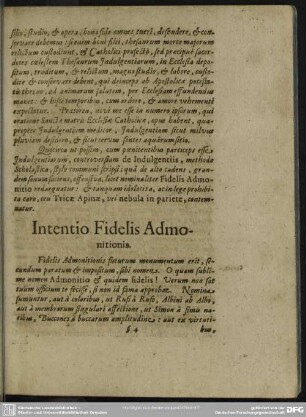 silio, studio, & opera, bona fide omnes tueri, defendere, & con-
servare debemus: sicuti boni filii, thesaurum morte majorum
relictum custodiunt, & Catholici profectò, sed præcipuè sacer-
dotes cœlestem Thesaurum Indulgentiarum, in Ecclesia depo-
situm, traditum, & relictum, magno studio, & labore, custo-
dire & conservare debent, qui deinceps ab Apostolicæ potesta-
tis throno, ad animarum salutem, per Ecclesiam effundendus
manet: & hisce temporibus, cum ardore, & amore vehementi
expetitur. Præterea, scivi me esse in numero ipsorum, qui
oratione Sanctæ matris Ecclesiæ Catholicæ, opus habent, qua-
propter Indulgentiam medicor, Indulgentiam sicut milvus
pluviam desidero, & sicut cervus sitiens aquarum sitio.
Quapropter ut possim, cum pœnitentibus particeps esse
Indulgentiarum, controversiam de Indulgentiis, methodo
Scholastica, stylo communi scripsi: quâ de alto cadens, gran-
dem sonum faciens, offensiva, licet nominaliter Fidelis Admo-
nitio redarguatur: & tanquam idololita, ac in lege prohibita
caro, ceu Tricæ Apinæ, vel nebula in pariete, contem-
natur.
Intentio Fidelis Admo-
nitionis.
Fidelis Admonitionis futurum monumentum erit, se-
cundum paratum & impositum, sibi nomen. O quam subli-
me nomen Admonitio & quidem fidelis! Verum non sat
tuum officium te fecisse, si non id fama approbet. Nomina
sumuntur, aut à coloribus, ut Rufi à Rufo, Albini ab Albo,
aut à membrorum singulari affectione, ut Simon à sima na-
ribus, Buccones à buccarum amplitudine: aut ex virtuti-
bus,